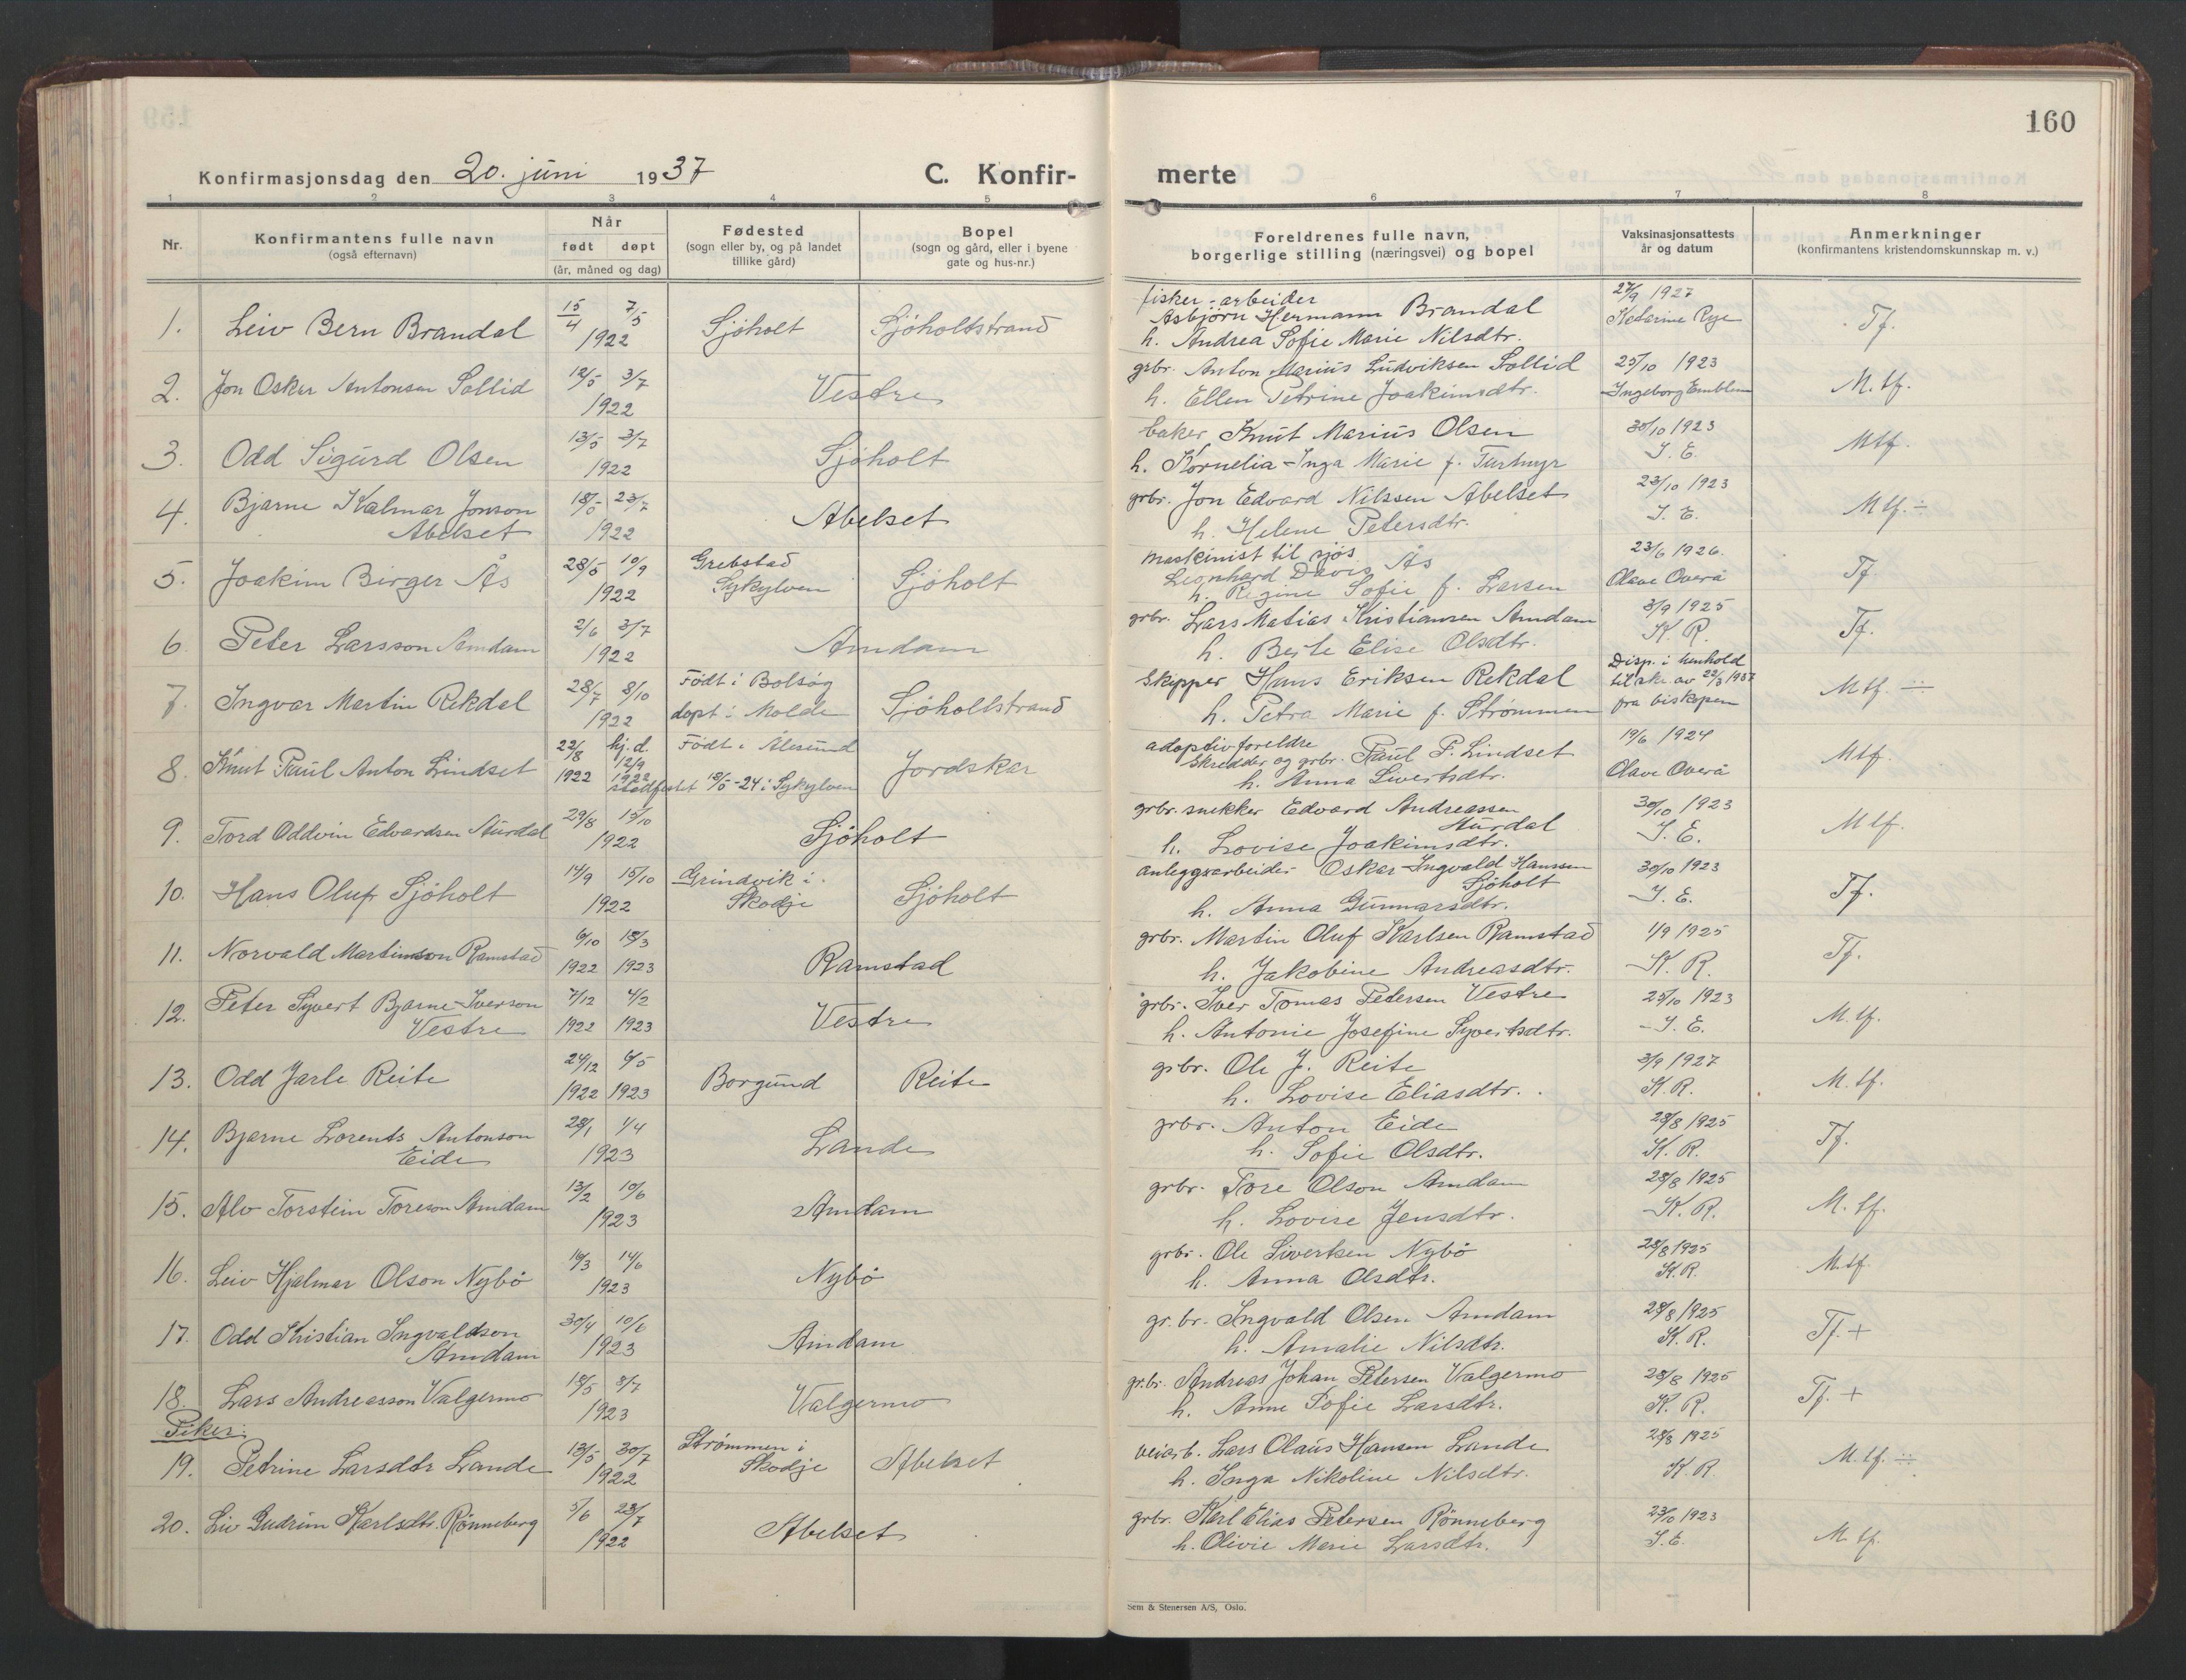 160
Konfirmasjonsdag den 20. juni 1937
C. Konfir-
merte
1 2 3 4 5 6 7 8
Nr.
Konfirmantens fulle navn
(også efternavn)
Når
født døpt
(år, måned og dag)
Fødested
(sogn eller by, og på landet
tillike gård)
Bopel
(sogn og gård, eller i byene
gate og hus-nr.)
Foreldrenes fulle navn,
borgerlige stilling (næringsvei) og bopel
Vaksinasjonsattests
år og datum
Anmerkninger
(konfirmantens kristendomskunnskap m. v.)
fisker-arbeider 27/9 1927
1. Leiv Bern Brandal 15/4 7/5 Sjøholt Sjøholtstrand Asbjørn Hermann Brandal Katarine Rye Tf.
1922 h. Andrea Sofie Marie Nilsdtr.
2. Jon Oskar Antonsen Sollid 12/5 3/7 Vestre grbr. Anton Marius Ludviksen Sollid 25/10 1923 M. tf.
1922 h. Ellen Petrine Joakimsdtr. Ingeborg Emblem
3. Odd Sigurd Olsen 13/5 3/7 Sjøholt baker Knut Marius Olsen 30/10 1923 Mtf.
1922 h. Kornelia Inga Marie f. I. E.
4. Bjarne Kalmar Jonson 18/5 23/7 Abelset grbr. Jon Edvard Nilssen Abelset 23/10 1923 Mtf. ÷
Abelset 1922 h. Helene Petersdtr. I. E.
maskinist til sjøs 23/6 1926.
5. Joakim Birger Ås 28/5 10/9 Grebstad Sjøholt Leonhard Davis Ås Olave Overå Tf
1922 Sykylven h. Regine Sofie f. Larsen
6. Peter Larsson Amdam 2/6 3/7 Amdam grbr. Lars Matias Kristiansen Amdam 3/9 1925 Tf.
1922 h. Berte Elise Olsdtr. K. R.
7. Ingvar Martin Rekdal 28/7 8/10 Født i Bolsøy Sjøholtstrand Skipper Hans Eriksen Rekdal Disp. i henhold Mtf. ÷
1922 døpt i Molde h. Petra Marie f. Strømmen til skr. av 22/3 1937
fra biskopen
8. Knut Paul Anton Lindset 22/8 hj.d. 12/9 Født i Ålesund Jordskar adoptivforeldre 19/6 1924 Mtf.
1922 1922 skredder og grbr. Paul P. Lindset Olave Overå
stadfestet 18/5-24 i Sykylven h. Anna Sivertsdtr.
9. Tord Oddvin Edvardsen Aurdal 29/8 15/10 Sjøholt grbr. snikker Edvard Andreassen 30/10 1923 Mtf.
1922 Aurdal I. E.
h. Lovise Joakimsdtr.
10. Hans Oluf Sjøholt 14/9 15/10 Grindvik i Sjøholt anleggsarbeider Oskar Ingvald Hanssen 30/10 1923 Tf.
1922 Skodje Sjøholt I. E.
h. Anna Gunnarsdtr.
11. Norvald Martinsson Ramstad 6/10 18/3 Ramstad grbr. Martin Oluf Karlsen Ramstad 1/9 1925 Tf.
1922 1923 h. Jakobine Andreasdtr. K. R.
12. Peter Syvert Bjarne Iverson 7/12 4/2 Vestre grbr. Iver Tomas Petersen Vestre 25/10 1923 M. tf.
Vestre 1922 1923 h. Antonie Josefine Syvertsdtr. I. E.
13. Odd Jarle Reite 24/12 6/5 Borgund Reite grbr. Ole J. Reite 3/9 1927 M. tf.
1922 1923 h. Lovise Eliasdtr. K. R.
14. Bjarne Lorents Antonson 28/1 1/4 Lande grbr. Anton Eide 28/8 1925 Tf.
Eide 1923 h. Sofie Olsdtr. K. R.
15. Alv Torstein Toreson Amdam 13/2 10/6 Amdam grbr. Tore Olson Amdam 28/8 1925 M. tf.
1923 h. Lovise Jensdtr. K. R.
16. Leiv Hjalmar Olson Nybø 16/3 14/6 Nybø grbr. Ole Sivertsen Nybø 28/8 1925 M. tf.
1923 h. Anna Olsdtr. K. R.
17. Odd Kristian Ingvaldson 30/4 10/6 Amdam gr.br. Ingvald Olsen Amdam 28/8 1925 Tf. +
Amdam 1923 h. Amalie Nilsdtr. K. R.
18. Lars Andreasson Valgermo 18/5 8/7 Valgermo gr.br. Andreas Johan Petersen Valgermo 28/8 1925 Tf. +
1923 h. Anne Sofie Larsdtr. K. R.
Piker:
19. Petrine Larsdtr Lande 13/5 30/7 Strømmen i Abelset veiarb. Lars Olaus Hansen Lande 28/8 1925 M. tf. ÷
1922 Skodje h. Inga Nikoline Nilsdtr. K. R.
20. Liv Gudrun Karlsdtr. Rønneberg 5/6 23/7 Abelset grbr. Karl Elias Petersen Rønneberg 23/10 1923 M. tf.
1922 h. Olivie Marie Larsdtr. I. E.
Sem & Stenersen A/S, Oslo.